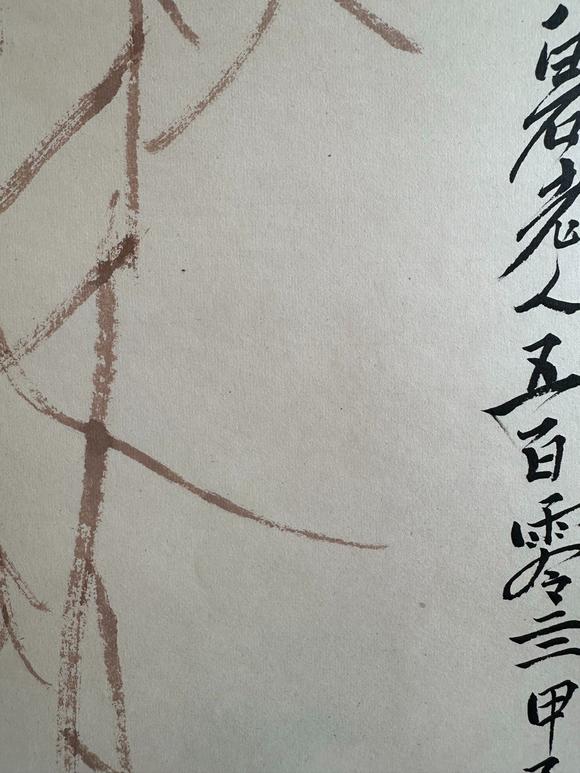 白石老人五百零三甲